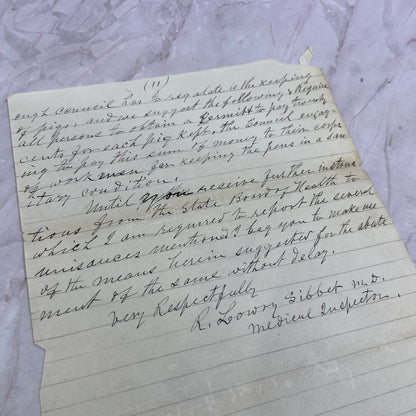 (11)
ough Council has to regulate is the keeping
of pigs, and we suggest the following: Require
all persons to obtain a Permitt to pay twenty
cents for each pig kept, the Council engag-
ing to pay this sum of money to their corps
of workmen for keeping the pens in a san-
itary condition.
Until you receive further instruc-
tions from the State Board of Health to
which I am required to report the several
nuisances mentioned I beg you to make use
of the means herein suggested for the abate
ment of the same without delay.
Very Respectfully
R. Lowry Sibbet M.D.
Medical Inspector.